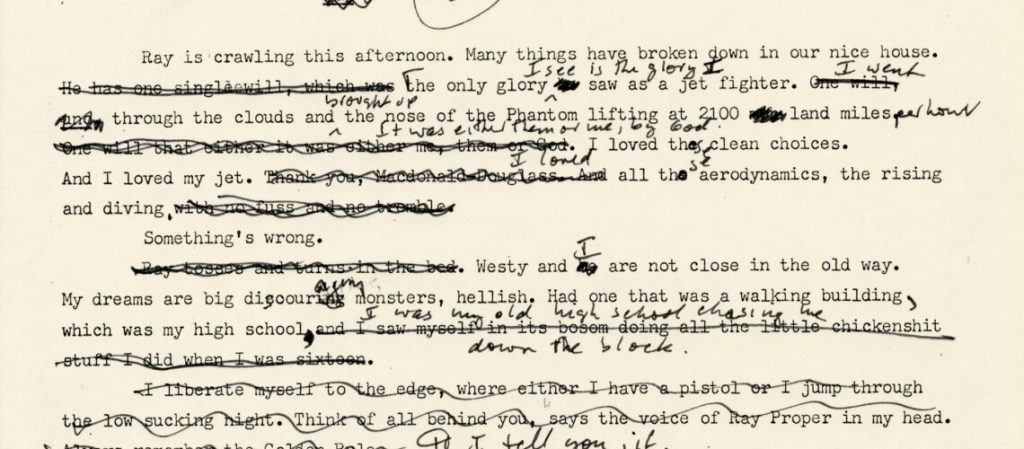 Ray is crawling this afternoon. Many things have broken down in our nice house.
I see is the glory I
I went
He has one single will, which was The only glory saw as a jet fighter. One will,
brought up
and, through the clouds and the nose of the Phantom lifting at 2100 land miles per hour
It was either them or me, by God.
One will that either it was either me, them or God. I loved those clean choices.
I loved
se
And I loved my jet. Thank you, Macdonald-Douglass. And all the aerodynamics, the rising
and diving, with no fuss and no tromble.
Something's wrong.
I
Ray tosses and turns in the bed. Westy and he are not close in the old way.
My dreams are big discouring monsters, hellish. Had one that was a walking building,
I was my old high school chasing me
which was my high school, and I saw myself in its bosom doing all the little chickenshit
down the block.
stuff I did when I was sixteen.
I liberate myself to the edge, where either I have a pistol or I jump through
the low sucking night. Think of all behind you, says the voice of Ray Proper in my head.
Always remember the Golden Rule
I tell you it.